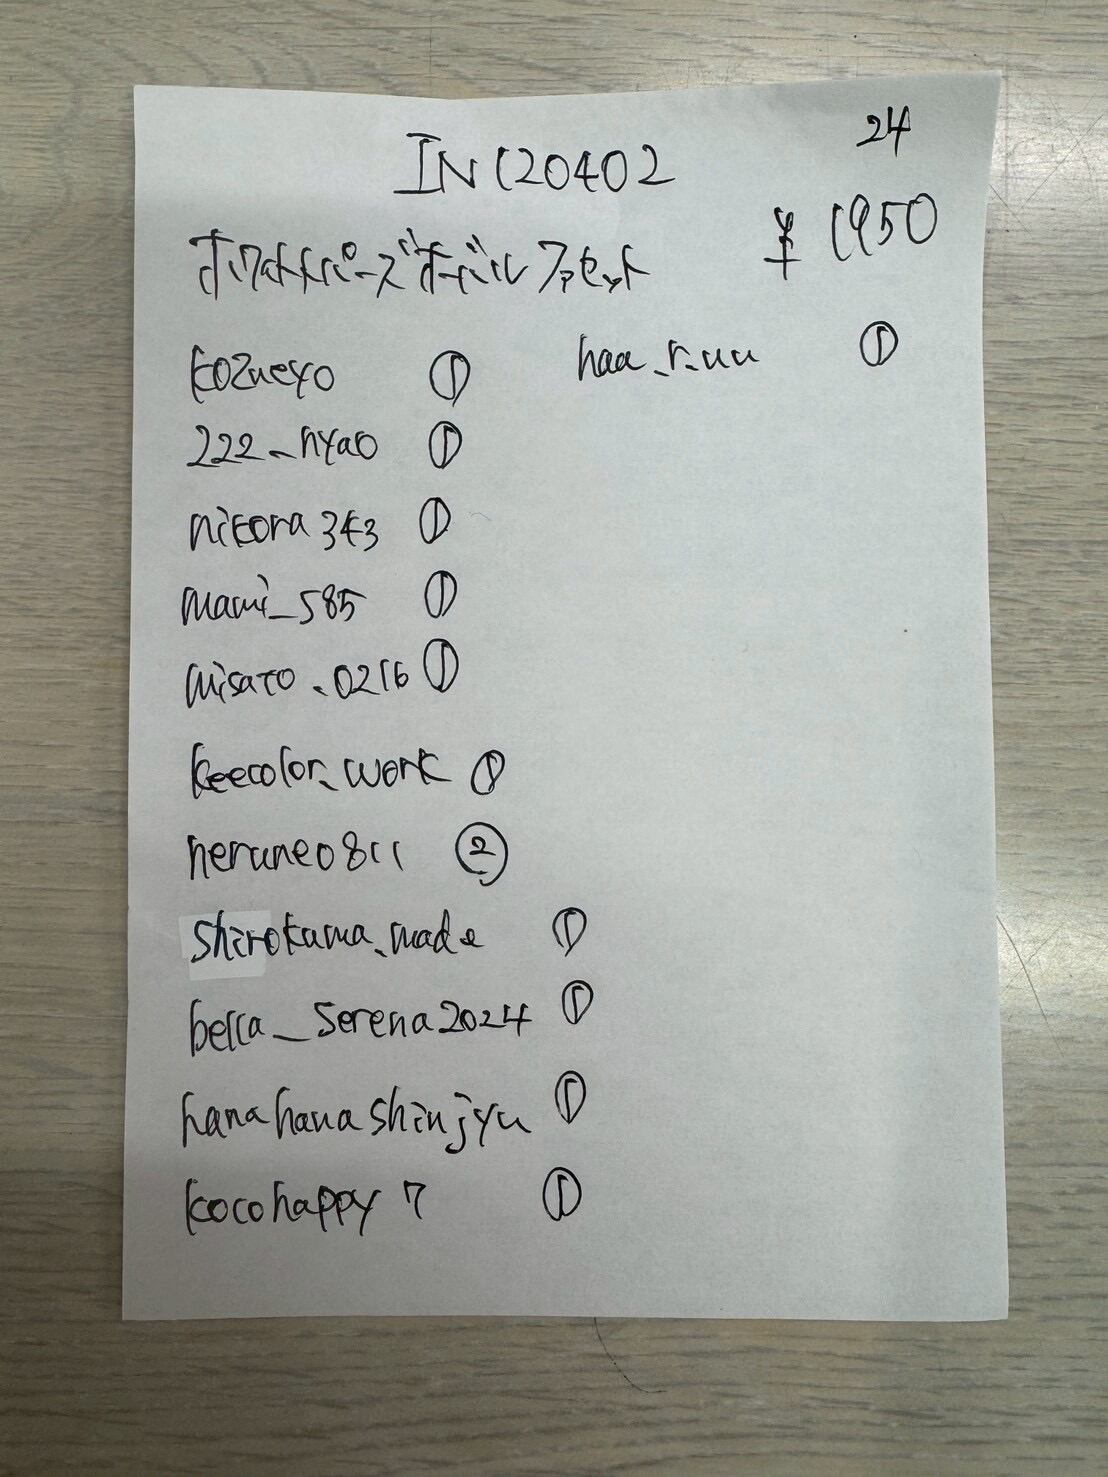 24
IN120402
¥ 1950
ホワイトトパーズ オーバル ファセット
kozueyo ①
haa_r.uu ①
222_nyao ①
nikora343 ①
mami_585 ①
misato.0216 ①
keecolor.work ①
nerune0811 ②
shirokuma.made ①
bella_serena2024 ①
hanahanashinjyu ①
kocohappy7 ①